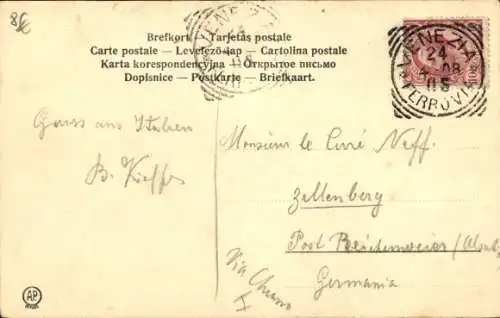 8€
Brefkort — Tarjetas postale
Carte postale — Levelezö-lap — Cartolina postale
Karta korespondencyjna — Открытое письмо
Dopisnice — Postkarte — Briefkaart.
VENEZIA
24
08
FERROVIA
VENEZIA
Gruss aus Italien
B. Kieffer
Monsieur le Curé Neff.
Zellenberg
Post Beichenweier (Alsace
Germania
Via Chiasso
AP